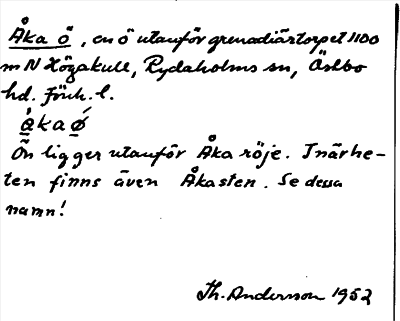 Åka ö, en ö utanför grenadiärtorpet 1100
m N Högakull, Rydaholms sn, Östbo
hd. Jönk. l.
åkaø´
Ön ligger utanför Åka röje. I närhe-
ten finns även Åkasten. Se dessa
namn!
Th. Andersson 1952